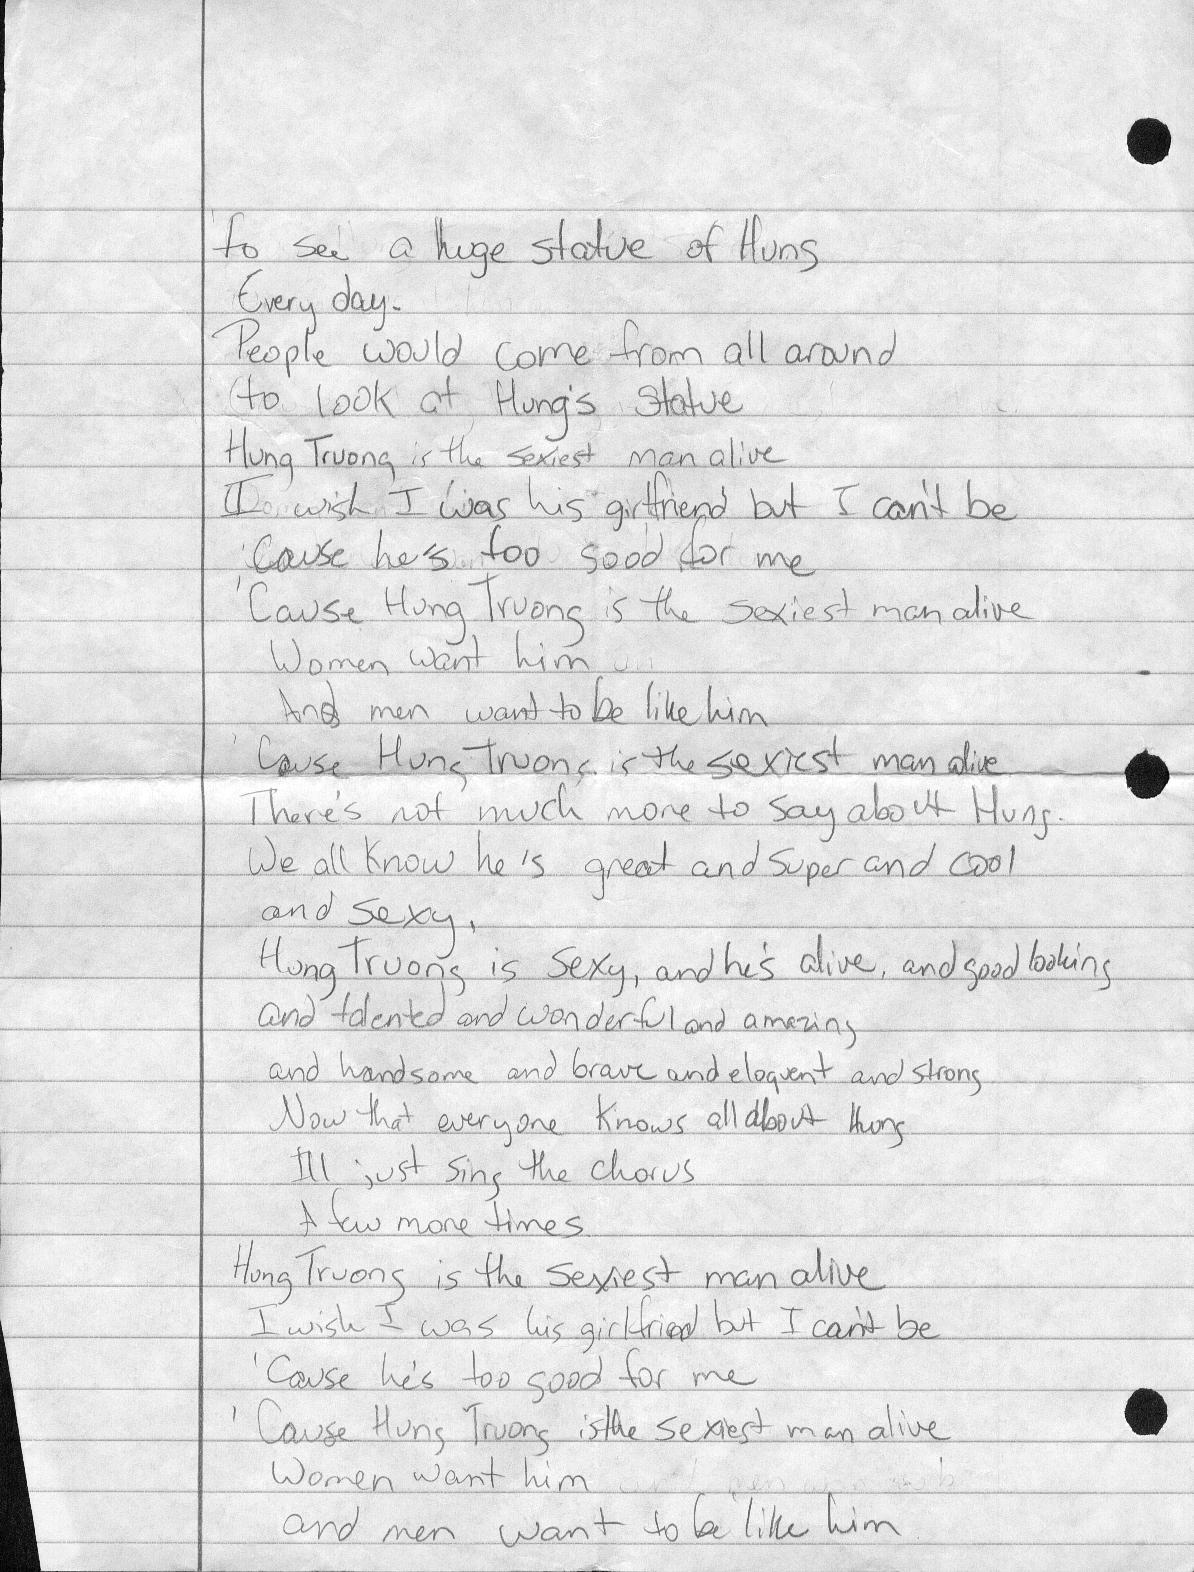 to see a huge statue of Hung
Every day.
People would come from all around
to look at Hung's statue
Hung Truong is the sexiest man alive
I wish I was his girlfriend but I can't be
'Cause he's too good for me
'Cause Hung Truong is the sexiest man alive
Women want him
And men want to be like him
'Cause Hung Truong is the sexiest man alive
There's not much more to say about Hung.
We all know he's great and super and cool
and sexy,
Hung Truong is sexy, and he's alive, and good looking
and talented and wonderful and amazing
and handsome and brave and eloquent and strong
Now that everyone knows all about Hung
I'll just sing the chorus
A few more times
Hung Truong is the sexiest man alive
I wish I was his girlfriend but I can't be
'Cause he's too good for me
'Cause Hung Truong is the sexiest man alive
Women want him
and men want to be like him